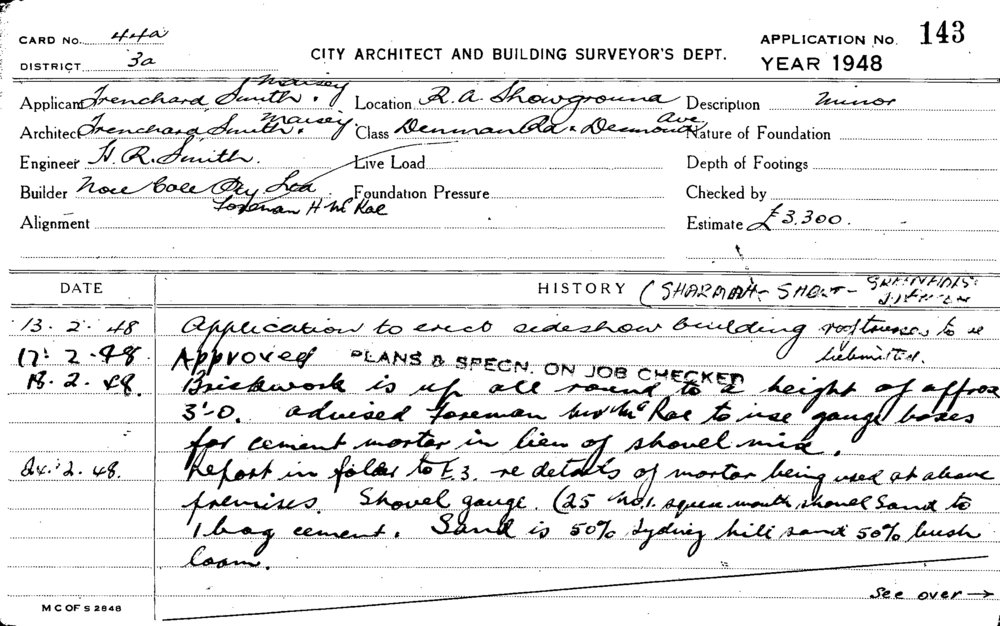 CARD No. 44a
DISTRICT 3a
CITY ARCHITECT AND BUILDING SURVEYOR'S DEPT.
APPLICATION No. 143
YEAR 1948
Applicant Trenchard Smith. Maisey
Location R.A. Showground
Description Minor
Architect Trenchard Smith. Maisey
Class Denman Rd & Desmond Ave
Nature of Foundation
Engineer H. R. Smith.
Live Load
Depth of Footings
Builder Pty Ltd
Foreman H McRae
Foundation Pressure
Checked by
Alignment
Estimate £3.300.
DATE
HISTORY (SHARMAN-
13. 2. 48 Application to erect sideshow building to be
submitted.
17. 2. 48. Approved PLANS & SPECN. ON JOB CHECKED
18. 2. 48. Brickwork is up all round to a height of approx
3'-0. advised foreman Mr McRae to use gauge boxes
for cement mortar in lieu of shovel mix.
24. 2. 48. Report in folder to E.3. re details of mortar being used at above
premises. Shovel gauge. (25 No.1. square mouth shovel Sand to
1 bag cement. Sand is 50% hill sand 50% bush
loam.
See over →
M C OF S 2848